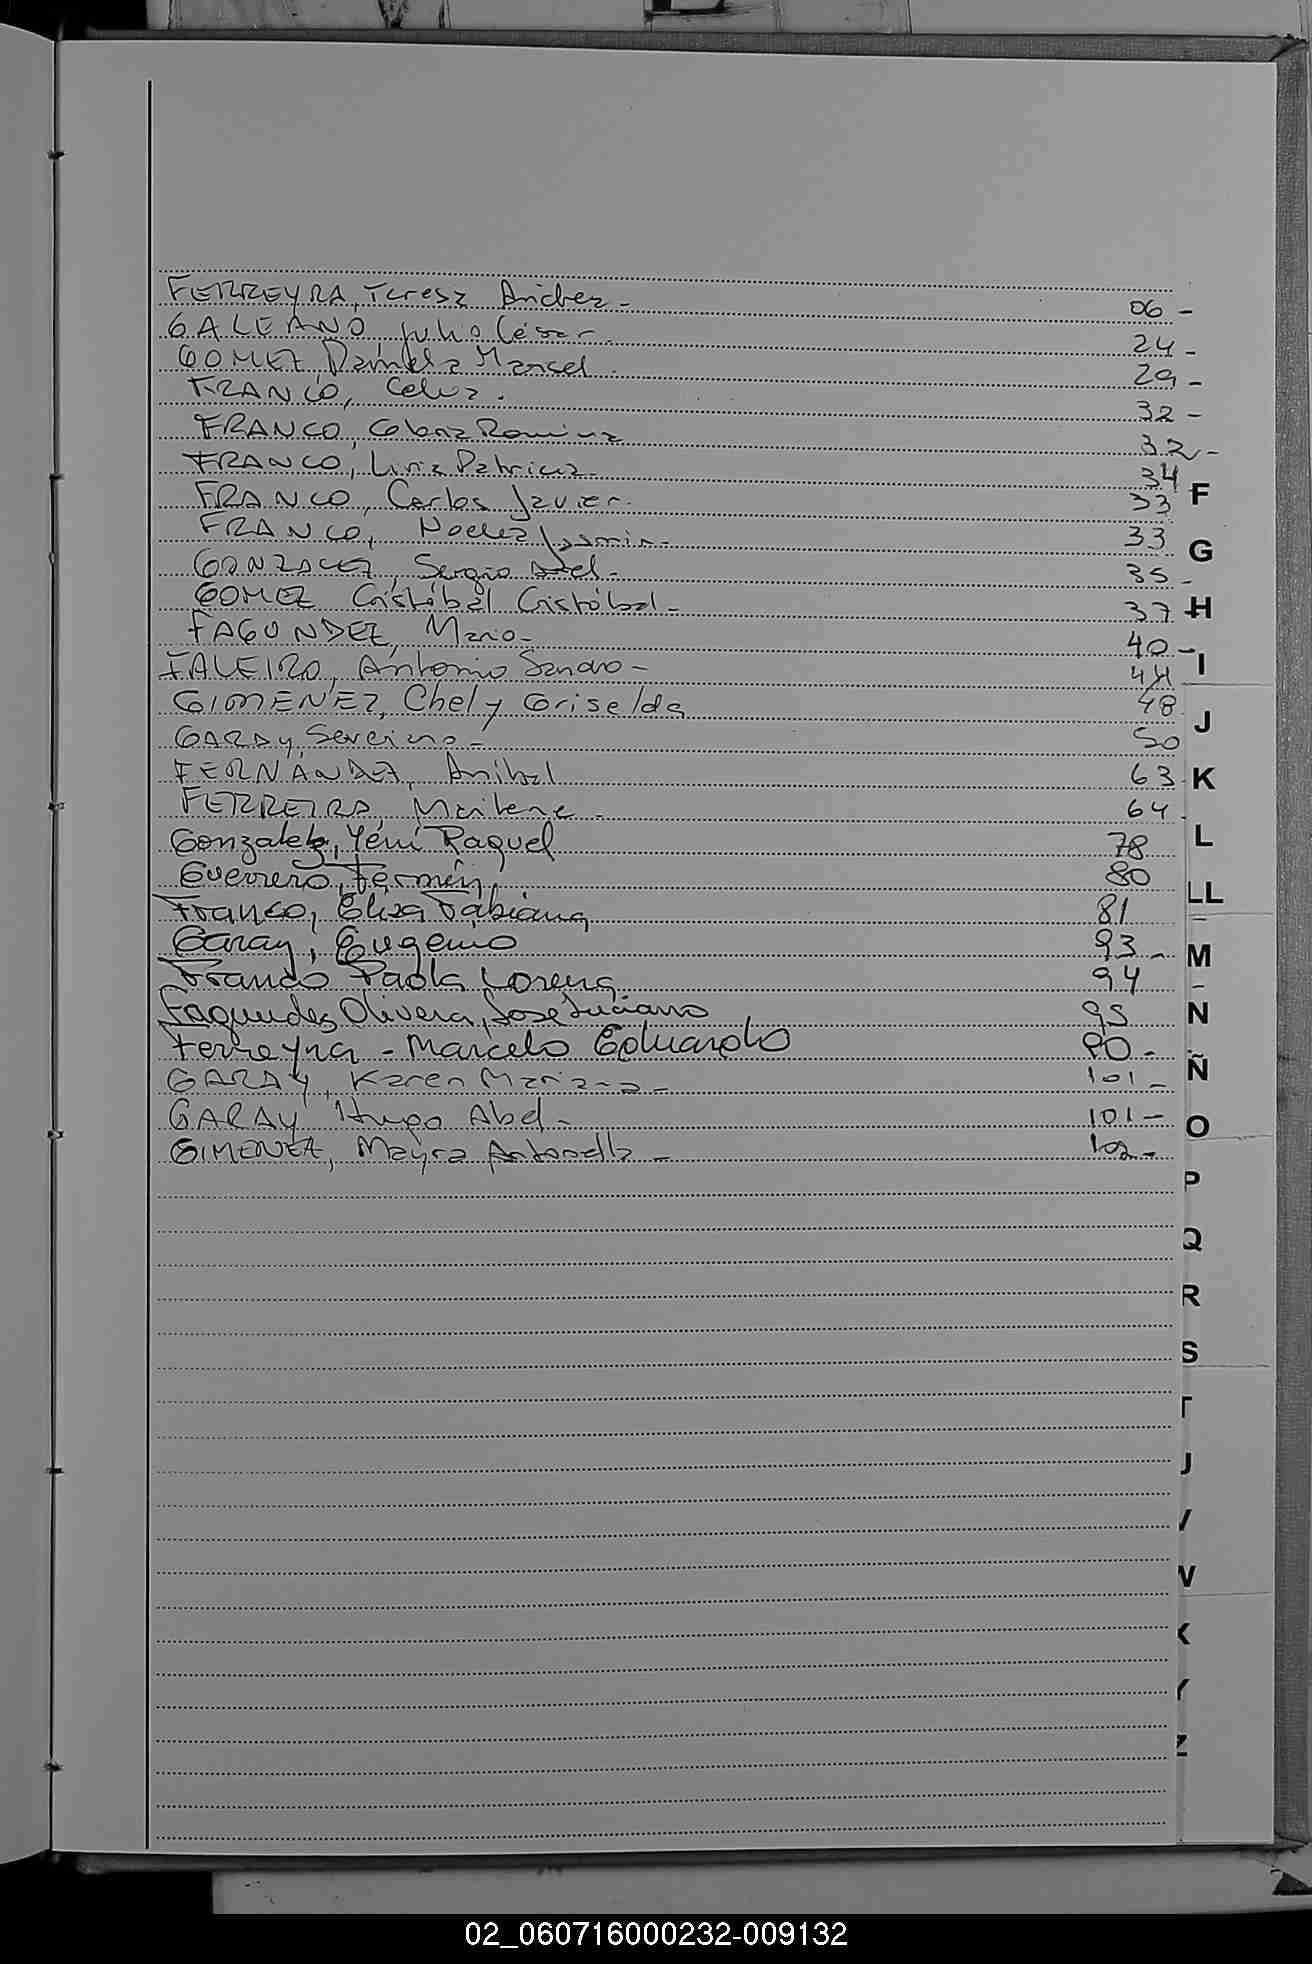 FERREYRA, Teresa Andrea - 06 -
GALEANO, Julio César. 24 -
GOMEZ, Daniela Marisel. 29 -
FRANCO, Celia. 32 -
FRANCO, Romina 32 -
FRANCO, Liria Patricia - 34
FRANCO, Carlos Javier. 33
FRANCO, Noelia Jasmin - 33
GONZALEZ, Sergio Abel - 35 -
GOMEZ Cristóbal Cristóbal - 37 -
FAGUNDEZ, Mario - 40 -
FALEIRO, Antonio Sandro - 44
GIMENEZ, Chely Griselda 48
GARAY, Severino - 50
FERNÁNDEZ, Anibal 63 -
FERREIRA, Marlene - 64 -
Gonzalez, Yeni Raquel 78
Guerrero, Fermín, 80
Franco, Elisa Fabiana 81
Garay, Eugenio 93 -
Franco Paola Lorena 94
Fagundez Olivera, José Luciano 95
Ferreyra - Marcelo Eduardo 90 -
GARAY, Karen Mariana - 101 -
GARAY Hugo Abel - 101 -
GIMENEZ, Mayra Antonella - 102 -
F
G
H
I
J
K
L
LL
M
N
Ñ
O
P
Q
R
S
T
U
V
W
X
Y
Z
02_060716000232-009132